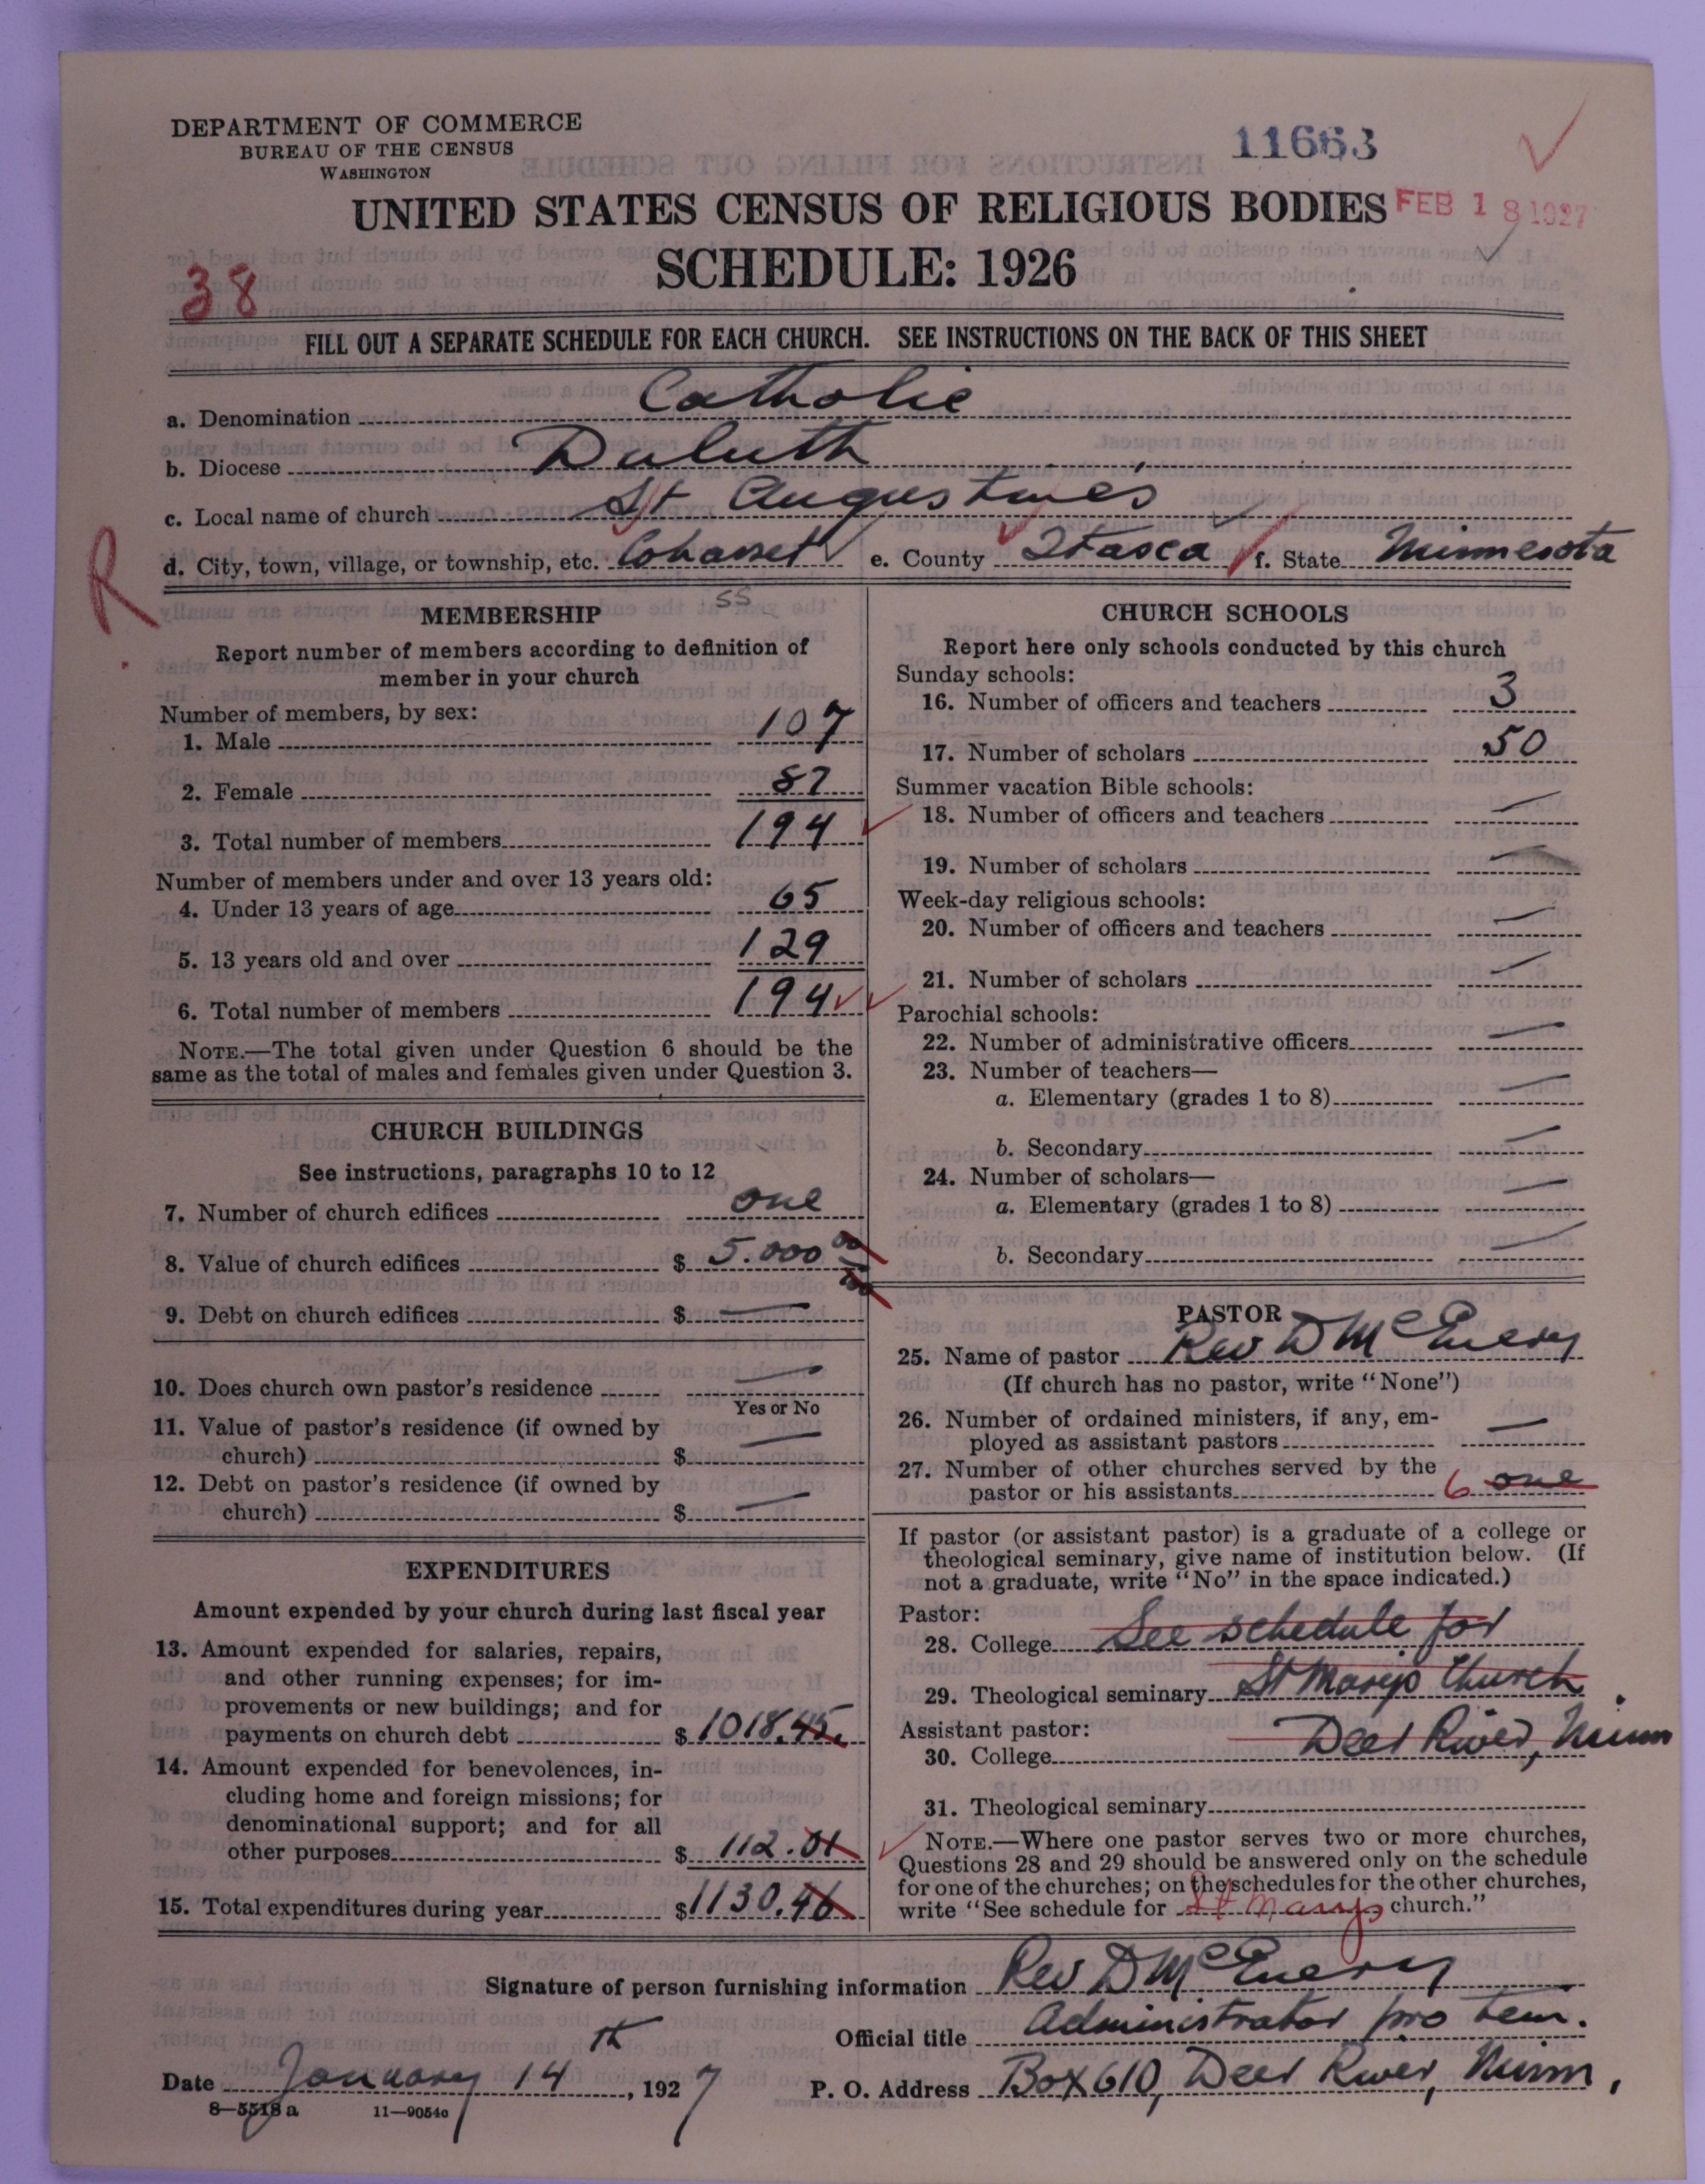 DEPARTMENT OF COMMERCE
BUREAU OF THE CENSUS
WASHINGTON
11663
UNITED STATES CENSUS OF RELIGIOUS BODIES FEB 18 1927
SCHEDULE: 1926
38
FILL OUT A SEPARATE SCHEDULE FOR EACH CHURCH. SEE INSTRUCTIONS ON THE BACK OF THIS SHEET
a. Denomination Catholic
b. Diocese Duluth
c. Local name of church St Augustines
d. City, town, village, or township, etc. Cohasset e. County Itasca f. State Minnesota
R
MEMBERSHIP
55
Report number of members according to definition of
member in your church
Number of members, by sex:
1. Male 107
2. Female 87
3. Total number of members 194
Number of members under and over 13 years old:
4. Under 13 years of age 65
5. 13 years old and over 129
6. Total number of members 194
NOTE.—The total given under Question 6 should be the
same as the total of males and females given under Question 3.
CHURCH BUILDINGS
See instructions, paragraphs 10 to 12
7. Number of church edifices one
8. Value of church edifices $ 5.000 00
9. Debt on church edifices $ —
10. Does church own pastor's residence —
Yes or No
11. Value of pastor's residence (if owned by
church) $ —
12. Debt on pastor's residence (if owned by
church) $ —
EXPENDITURES
Amount expended by your church during last fiscal year
13. Amount expended for salaries, repairs,
and other running expenses; for im-
provements or new buildings; and for
payments on church debt $ 1018.45
14. Amount expended for benevolences, in-
cluding home and foreign missions; for
denominational support; and for all
other purposes $ 112.01
15. Total expenditures during year $ 1130.46
CHURCH SCHOOLS
Report here only schools conducted by this church
Sunday schools:
16. Number of officers and teachers 3
17. Number of scholars 50
Summer vacation Bible schools:
18. Number of officers and teachers —
19. Number of scholars —
Week-day religious schools:
20. Number of officers and teachers —
21. Number of scholars —
Parochial schools:
22. Number of administrative officers —
23. Number of teachers—
a. Elementary (grades 1 to 8) —
b. Secondary —
24. Number of scholars—
a. Elementary (grades 1 to 8) —
b. Secondary —
PASTOR
25. Name of pastor Rev D McEnery
(If church has no pastor, write "None")
26. Number of ordained ministers, if any, em-
ployed as assistant pastors —
27. Number of other churches served by the
pastor or his assistants 6 one
If pastor (or assistant pastor) is a graduate of a college or
theological seminary, give name of institution below. (If
not a graduate, write "No" in the space indicated.)
Pastor:
28. College See schedule for
29. Theological seminary St Marys Church
Assistant pastor:
30. College Deer River, Minn
31. Theological seminary
NOTE.—Where one pastor serves two or more churches,
Questions 28 and 29 should be answered only on the schedule
for one of the churches; on the schedules for the other churches,
write "See schedule for St Marys church."
Signature of person furnishing information Rev D McEnery
Official title Administrator pro tem.
Date January 14th, 1927 P. O. Address Box 610, Deer River, Minn,
8—5518 a 11—9054c